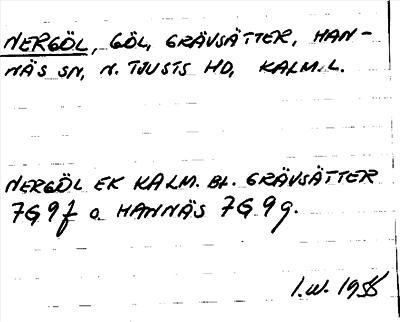 NERGÖL, GÖL, GRÄVSÄTTER, HAN-
NÄS SN, N. TJUSTS HD, KALM. L.
NERGÖL EK KALM. BL. GRÄVSÄTTER
7G 9f o HANNÄS 7G 9g.
I.W. 1955